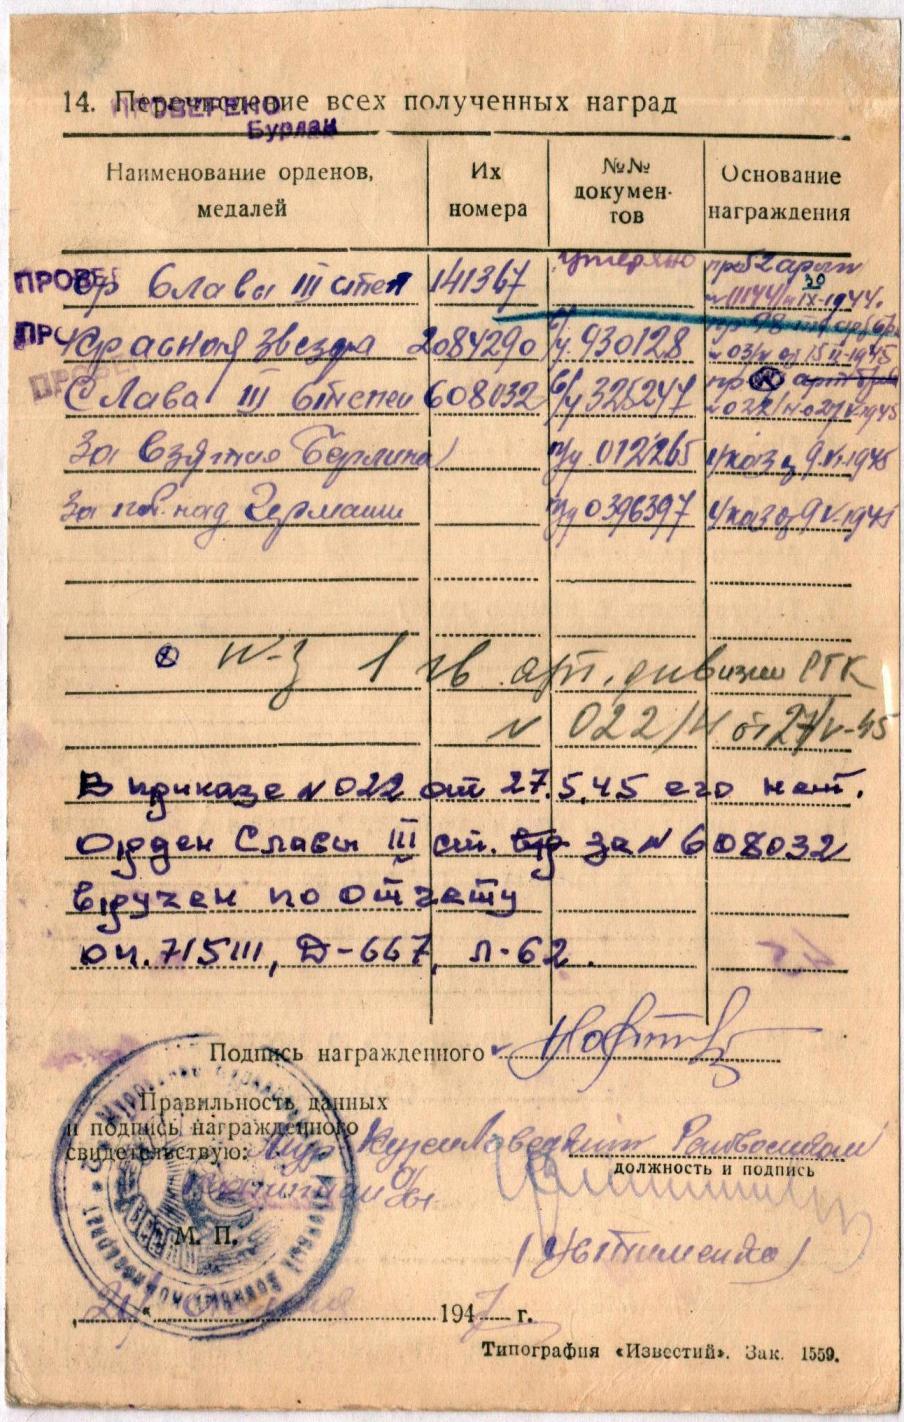 14. Перечисление всех полученных наград
ПРОВЕРЕНО
Бурлак
Наименование орденов, медалей
Их номера
№№ документов
Основание награждения
ПРОВЕ
ор Славы III степ 141367 утеряно пр 52 арт
1944.
ПРО
Красная Звезда 2084290 930128 15 II-1945
ПРОВЕ
Слава III степени 608032 б/у 328247 пр ⊗ 022/н 27 V-1945
За взятие Берлина 012265 Указ 9.VI-1945
За поб. над Германии 0396397 Указ 9 V-1945
⊗ 1 гв арт. дивизии РГК
№ 022/н от 27/V-45
В приказе № 022 от 27.5.45 его нет.
Орден Славы III ст. вр за № 608032
вручен по отчету
оп. 715111, Д-667, л-62.
Подпись награжденного
Правильность данных
и подпись награжденного
свидетельствую:
должность и подпись
М. П.
(Устименко)
1947 г.
Типография «Известий». Зак. 1559.